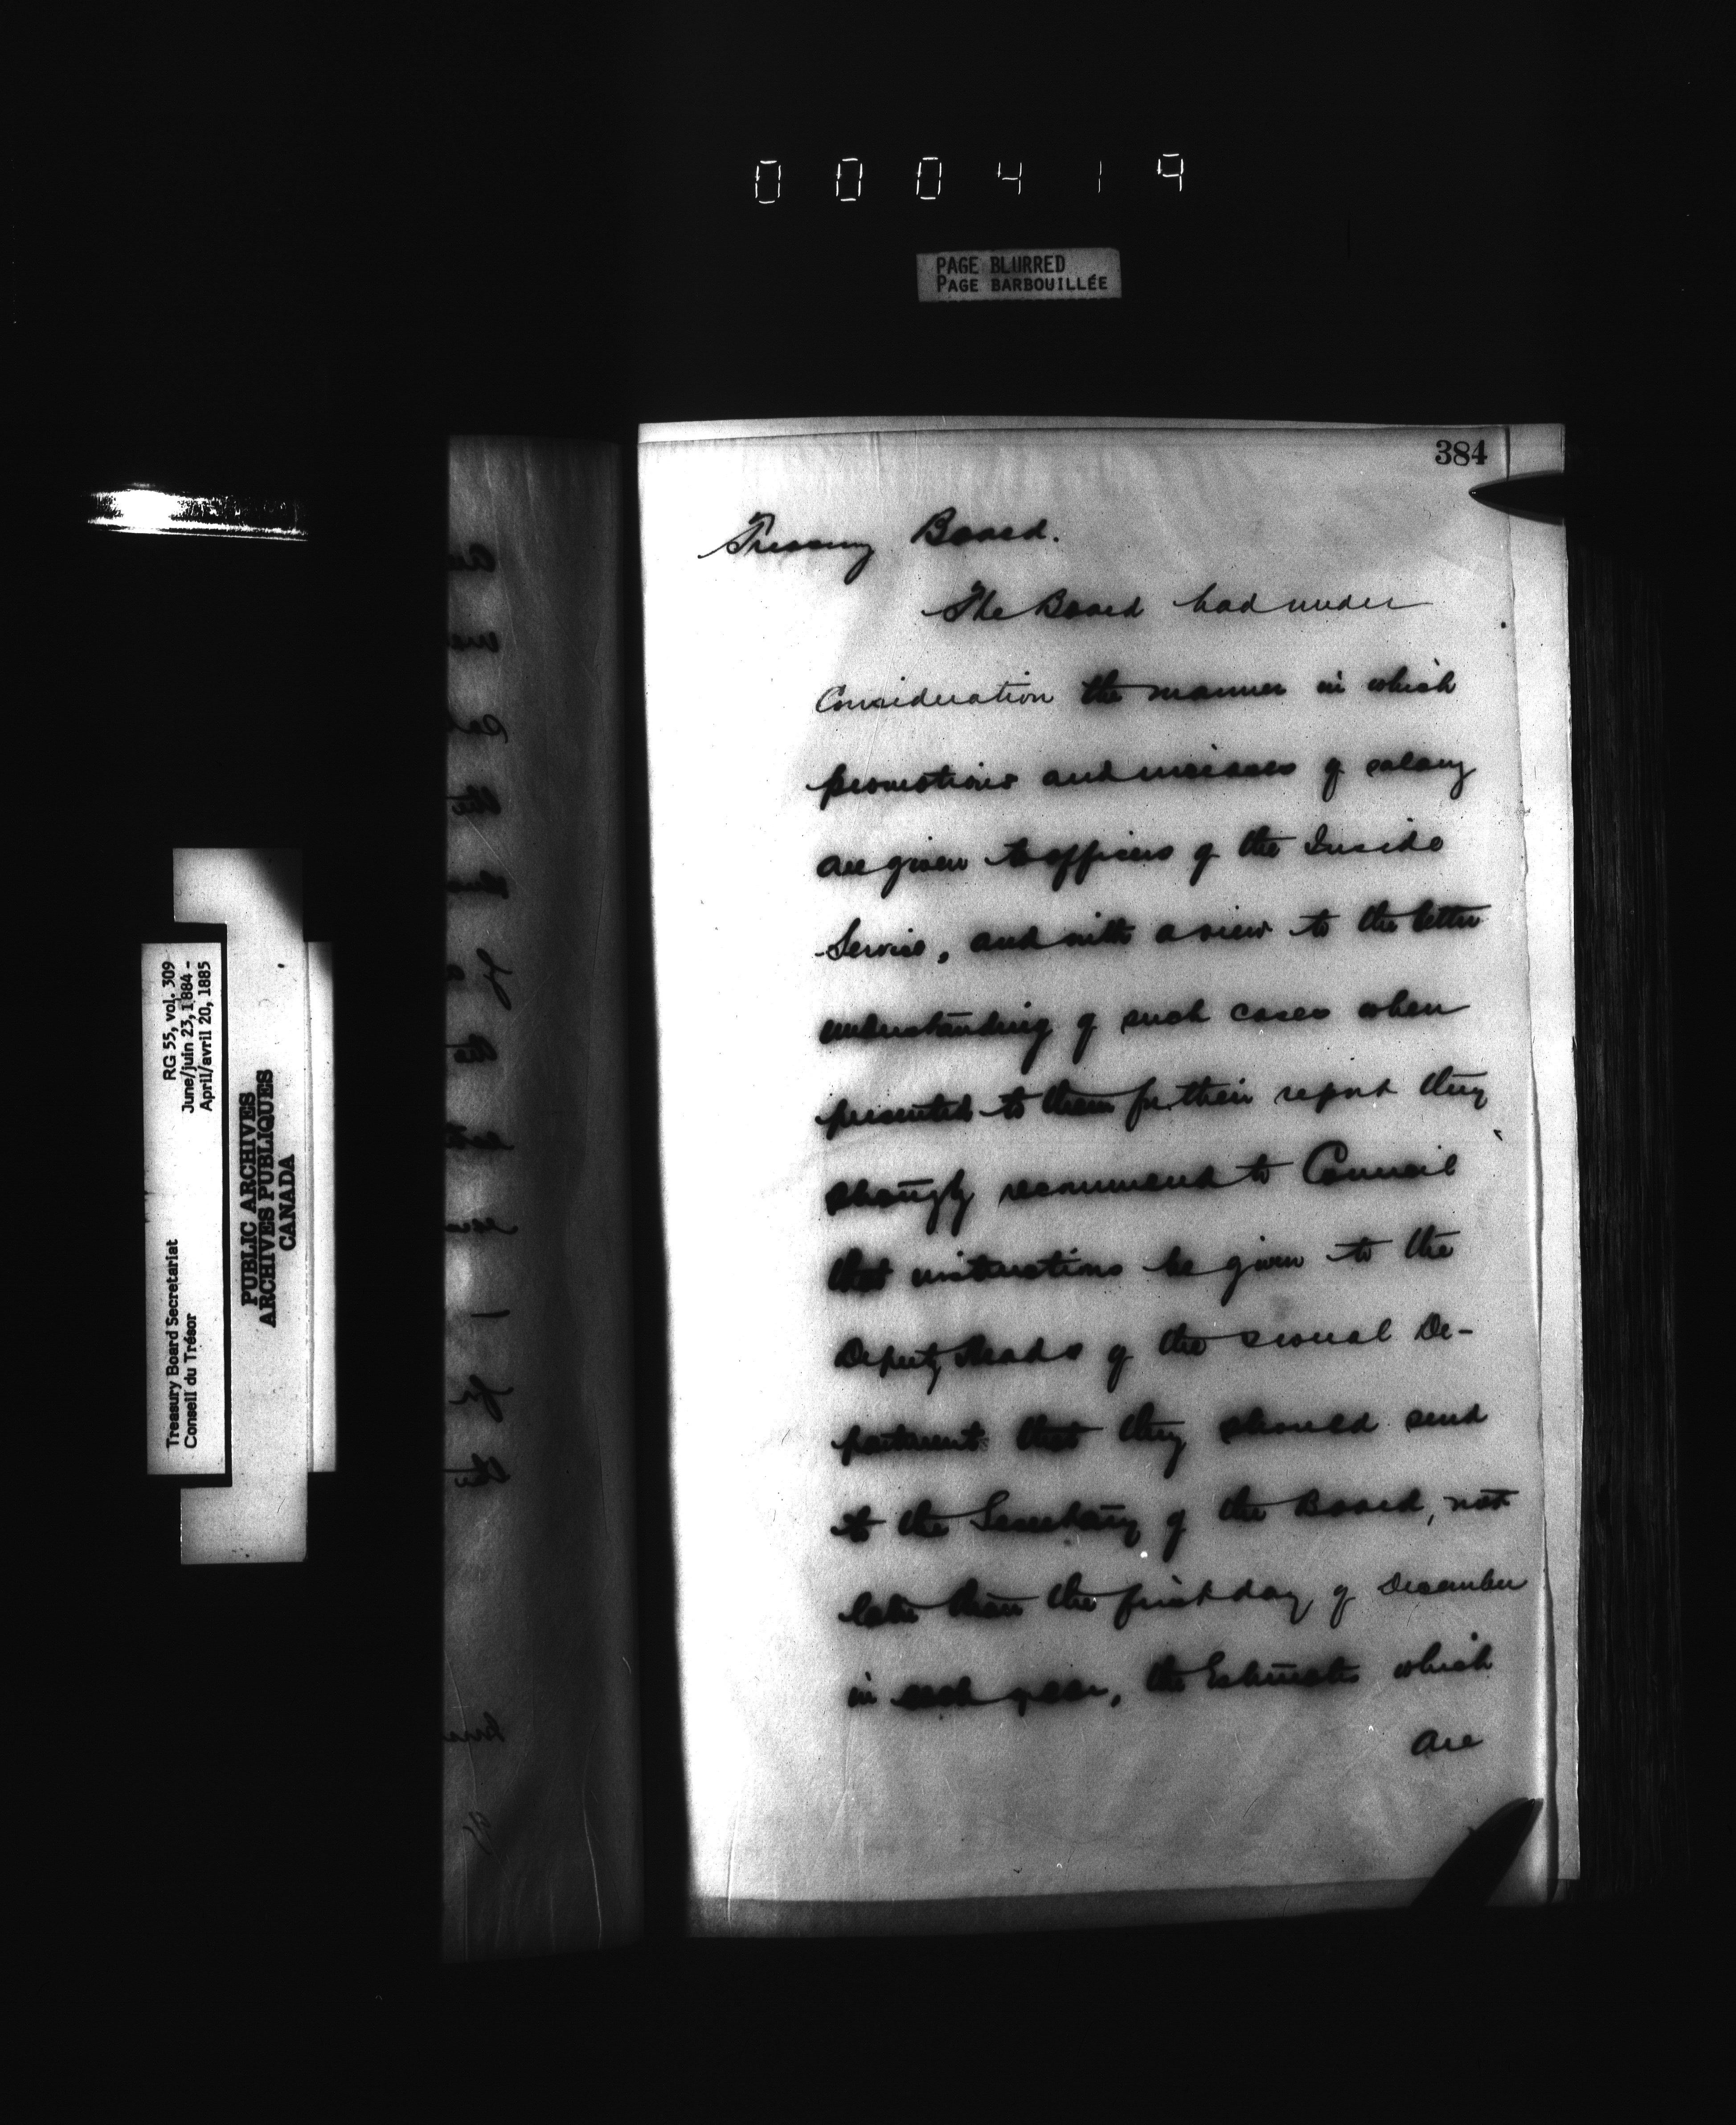 000419
PAGE BLURRED
PAGE BARBOUILLÉE
384
Treasury Board.
The Board had under
Consideration the manner in which
promotions and increases of salary
are given to officers of the Inside
Service, and with a view to the better
understanding of such cases when
presented to them for their report they
strongly recommend to Council
that instructions be given to the
Deputy Heads of the several De-
partments that they should send
to the Secretary of the Board, not
later than the first day of December
in each year, the Estimates which
are
RG 55, vol. 309
June/juin 23, 1884 -
April/avril 20, 1885
Treasury Board Secretariat
Conseil du Trésor
PUBLIC ARCHIVES
ARCHIVES PUBLIQUES
CANADA